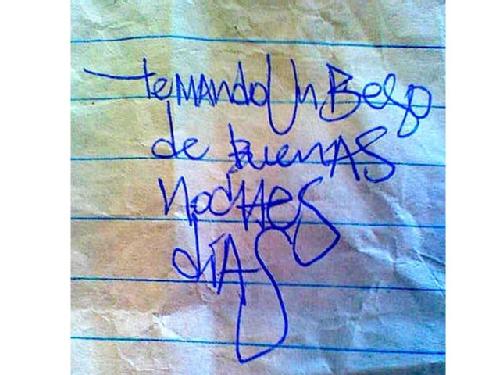 temando Un Beso
de Buenas
Noches
dias